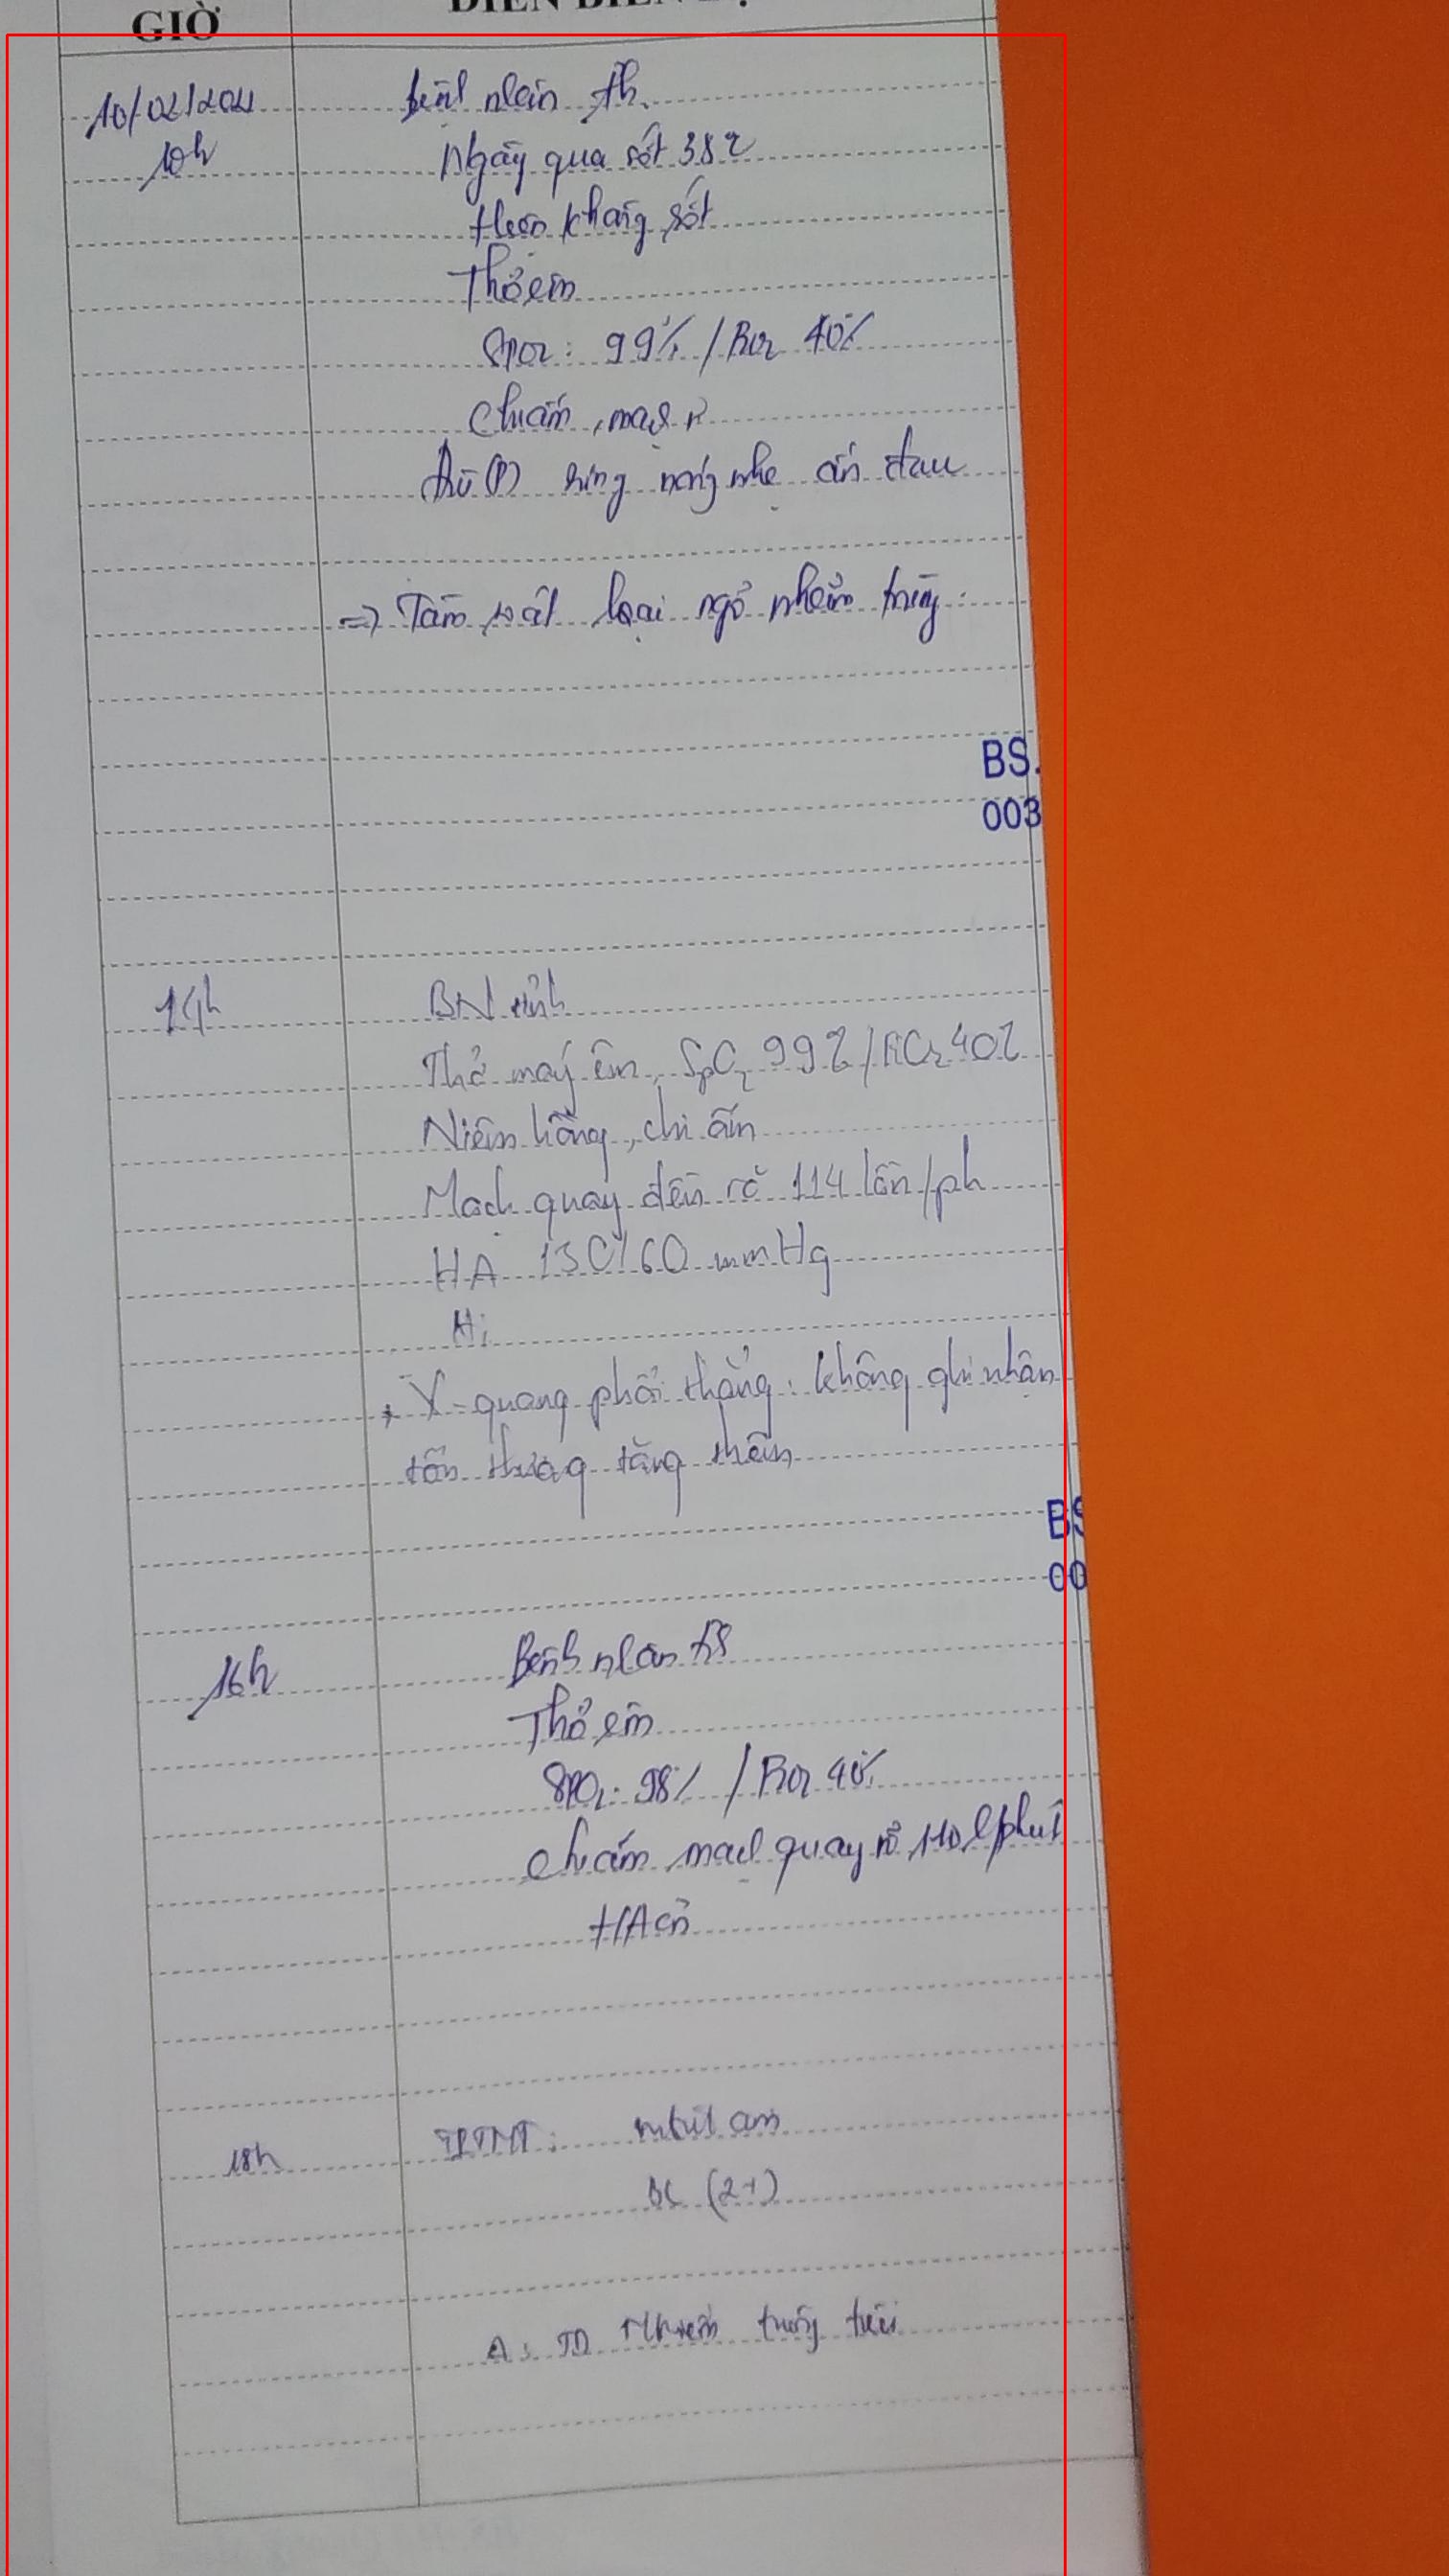 GIỜ
10/02/2021 Bệnh nhân
10h Ngày qua sốt 38
kháng sốt
Thở êm
SpO2: 99% / FiO2 40%
Chi ấm, mạch
nóng nhẹ ấn đau
=> Tầm soát loại ngõ nhiễm trùng.
BS.
003
14h BN tỉnh
Thở máy êm, SpO2 99% / FiO2 40%
Niêm hồng, chi ấm
Mạch quay đều rõ 114 lần/ph
HA 130/60 mmHg
X-quang phổi thẳng: không ghi nhận
tổn thương tăng thêm
BS
00
16h Bệnh nhân
Thở êm
SpO2: 98% / FiO2 40%
chi ấm, mạch quay rõ 110 l/phút
HA ổn
18h TPTNT:
BC (2+)
A: TD Nhiễm trùng tiểu